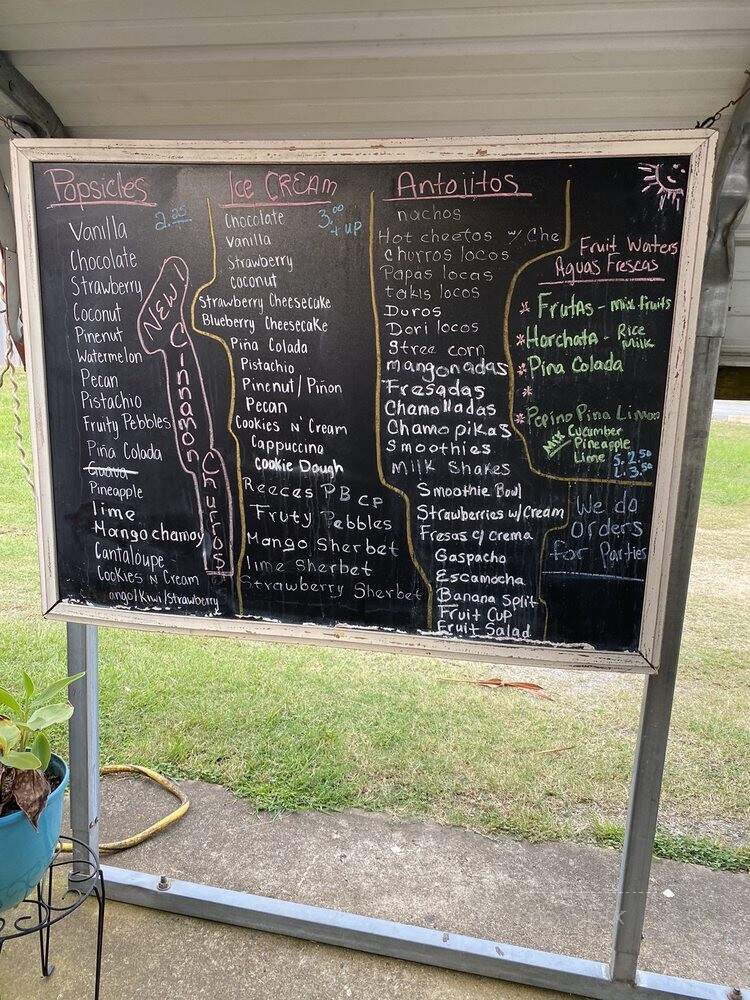 Popsicles
2.25
Vanilla
Chocolate
Strawberry
Coconut
Pinenut
Watermelon
Pecan
Pistachio
Fruity Pebbles
Piña Colada
Guava
Pineapple
lime
Mango chamoy
Cantaloupe
Cookies N Cream
ango/Kiwi/strawberry
NEW!
Cinnamon
Churros
Ice CREAM
3.00
+ up
Chocolate
Vanilla
Strawberry
coconut
Strawberry Cheesecake
Blueberry Cheesecake
Piña Colada
Pistachio
Pinenut/Piñon
Pecan
Cookies N' Cream
Cappuccino
Cookie Dough
Reeces PB CP
Fruty Pebbles
Mango Sherbet
lime Sherbet
Strawberry Sherbet
Antojitos
nachos
Hot cheetos w/ Che
churros locos
Papas locas
takis locos
Duros
Dori locos
Stree corn
mangonadas
Fresadas
Chamolladas
Chamopikas
Smoothies
Milk Shakes
Smoothie Bowl
Strawberries w/Cream
Fresas c/ crema
Gaspacho
Escamocha
Banana Split
Fruit Cup
Fruit Salad
Fruit Waters
Aguas Frescas
* Frutas - mix fruits
* Horchata - Rice
Milk
* Pina Colada
*
* Pepino Pina Limon
Mix Cucumber
Pineapple
Lime
S. 2.50
L. 3.50
We do
orders
for Parties